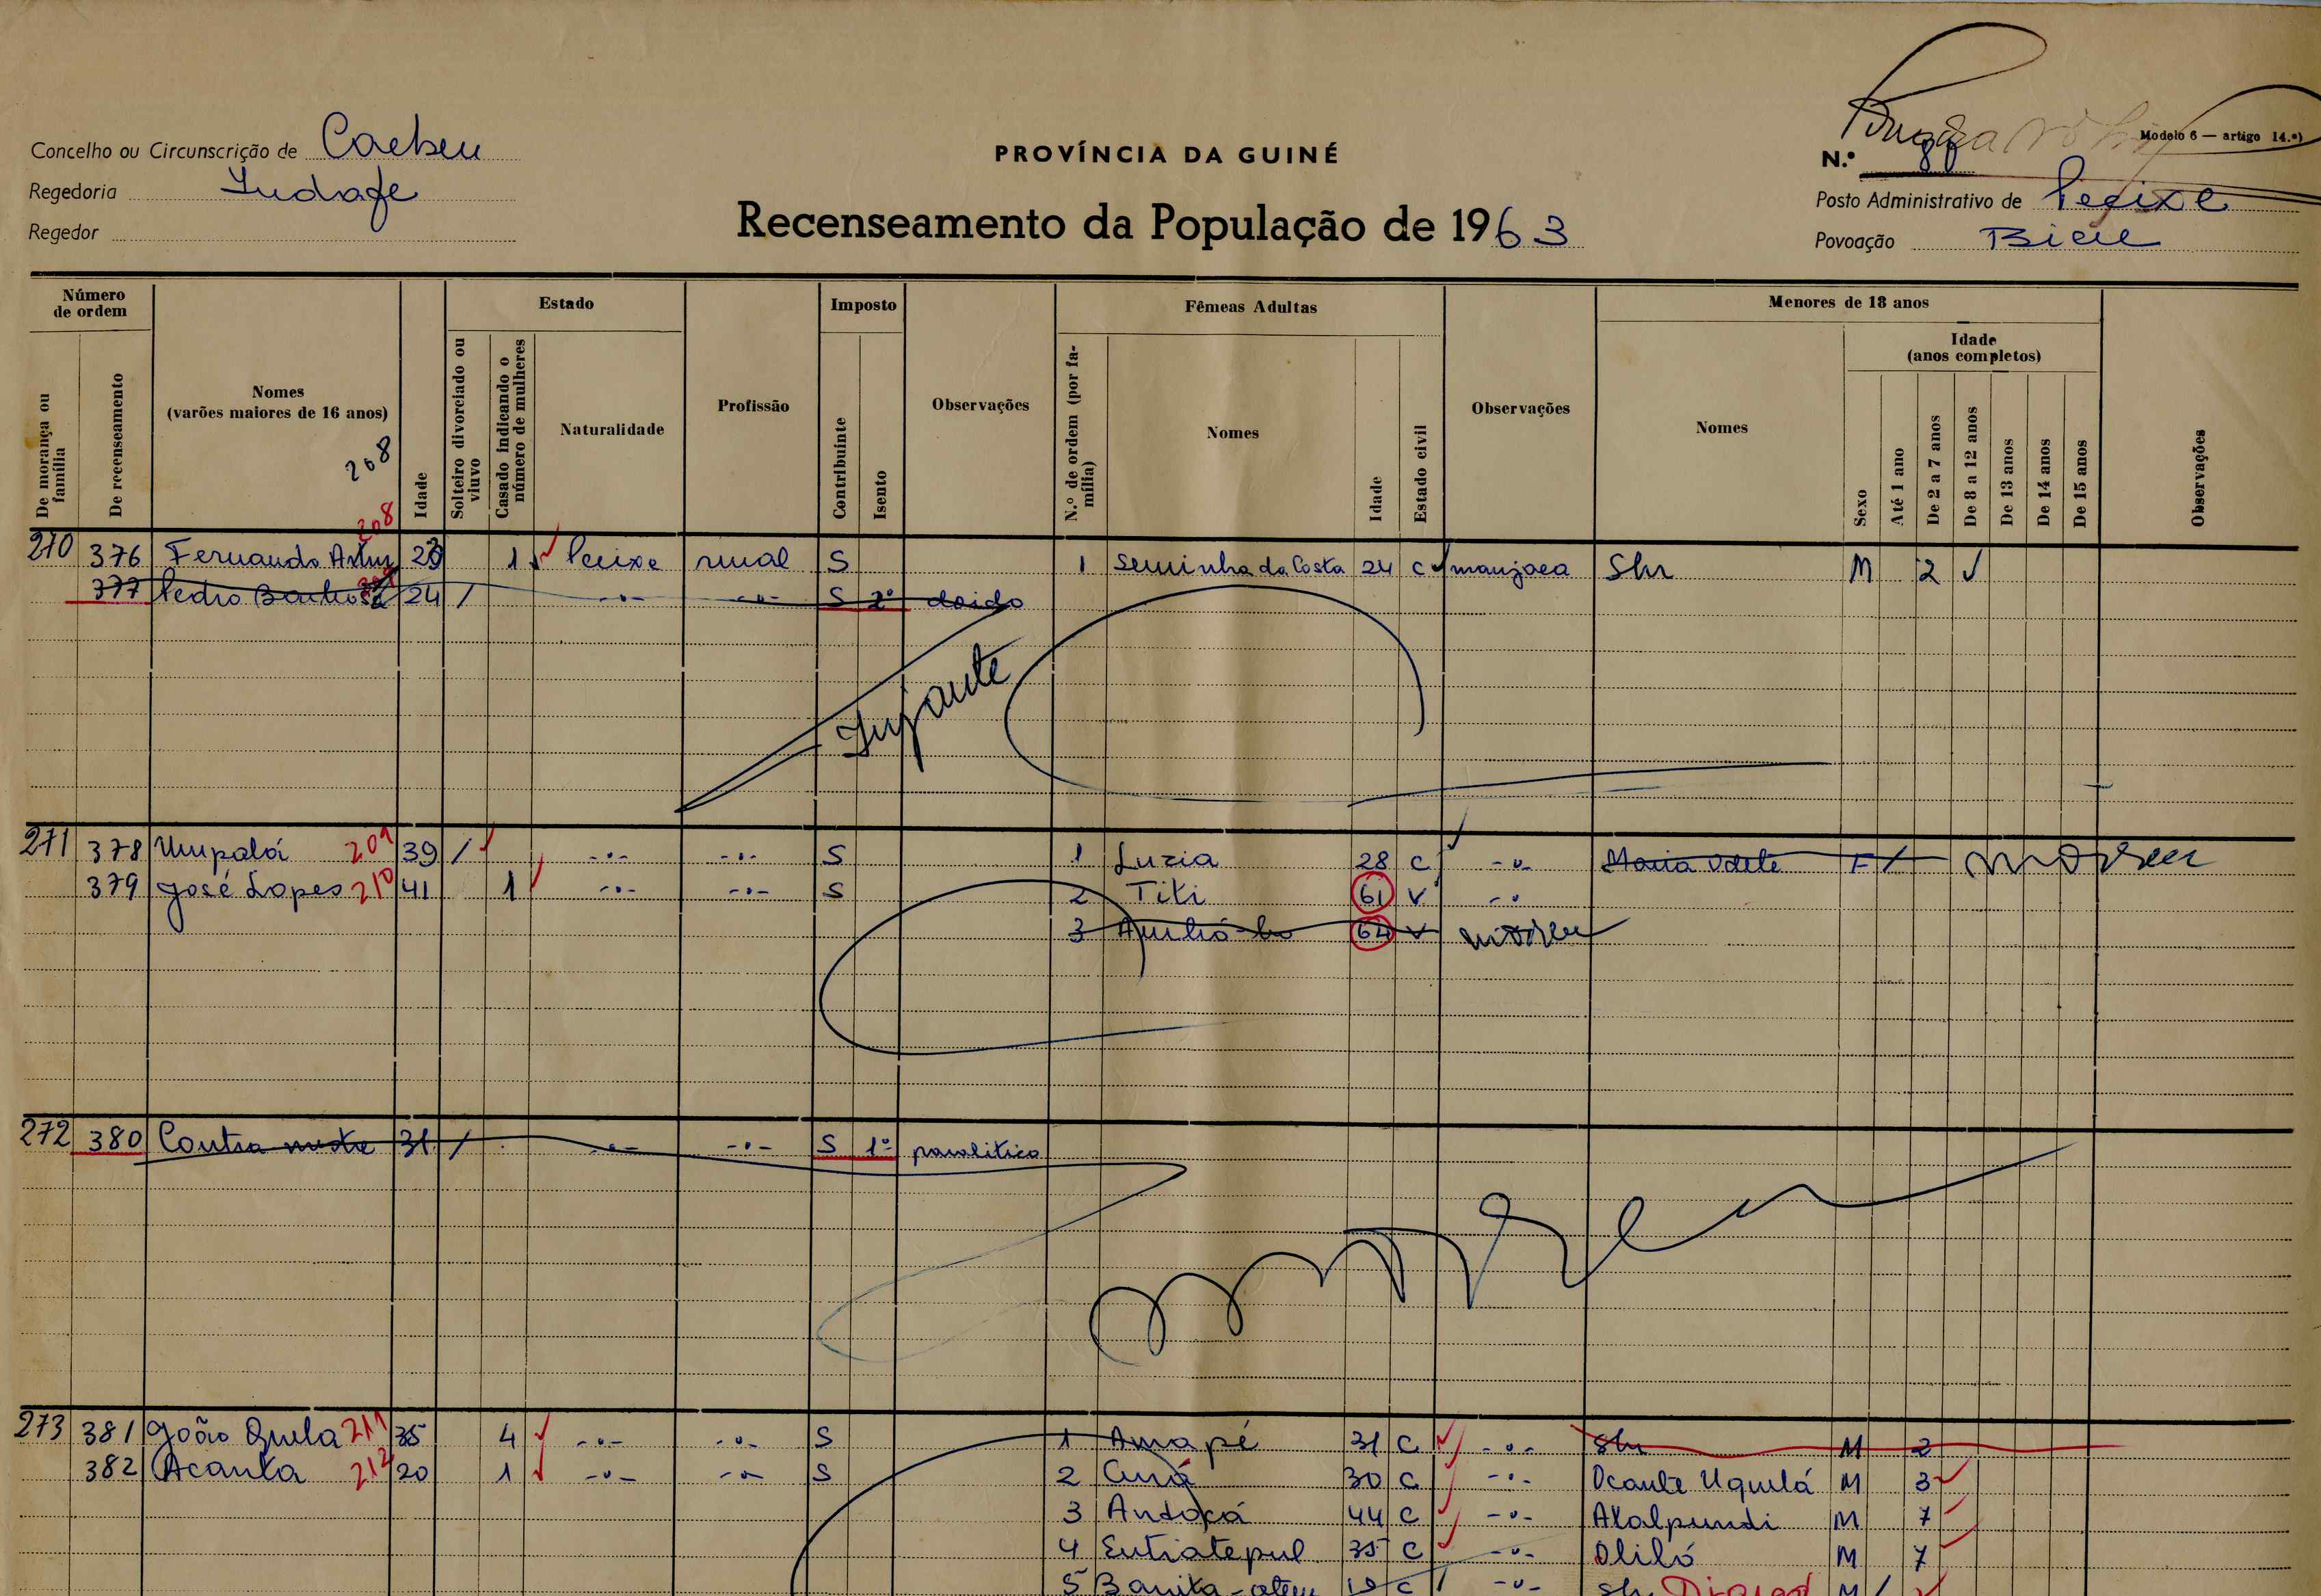 Modelo 6 — artigo 14.º)
Concelho ou Circunscrição de Caeheu
PROVÍNCIA DA GUINÉ
N.º
Regedoria
Posto Administrativo de Pecixe
Regedor
Recenseamento da População de 1963
Povoação
Número de ordem
Estado
Imposto
Fêmeas Adultas
Menores de 18 anos
Idade
(anos completos)
De morança ou família
De recenseamento
Nomes
(varões maiores de 16 anos)
Idade
Solteiro divorciado ou viuvo
Casado indicando o número de mulheres
Naturalidade
Profissão
Contribuinte
Isento
Observações
N.º de ordem (por família)
Nomes
Idade
Estado civil
Observações
Nomes
Sexo
Até 1 ano
De 2 a 7 anos
De 8 a 12 anos
De 13 anos
De 14 anos
De 15 anos
Observações
208
208
270 376 Fernando Artur 1 Pecixe rural S 1 Seminha da Costa 24 C manjaca M 2
377 Pedro 24 / -"- -"- S 2º doido
271 378 Umpalá 209 39 / -"- -"- S 1 Luzia 28 C -"- Maria Odete F
379 José Lopes 210 41 1 -"- -"- S 2 Titi 61 V -"-
3 64 V morreu
272 380 Contra mestre 31 / -"- -"- S 1º paralitico
morreu
273 381 João Quela 211 35 4 -"- -"- S 1 Amapé 31 C -"- M 2
382 Acanta 212 20 1 -"- -"- S 2 30 C -"- Ocante Uquilá M 3
3 Andocá 44 C -"- M 7
4 Entiatepul 35 C -"- M 7
5 C -"- M